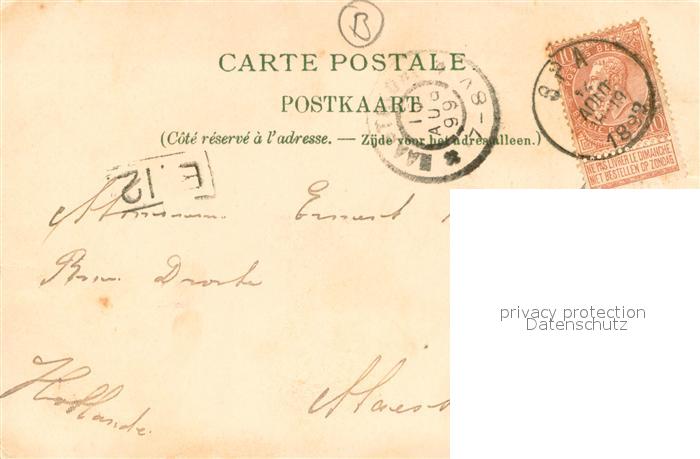 B
CARTE POSTALE
POSTKAART
(Côté réservé à l'adresse. — Zijde voor het adres alleen.)
SPA
14
AOUT
1899
10
NE PAS LIVRER LE DIMANCHE
NIET BESTELLEN OP ZONDAG
AUG
99
7-8V
E.12
Monsieur Ernest
Rue Droite
Hollande
Maes
privacy protection
Datenschutz